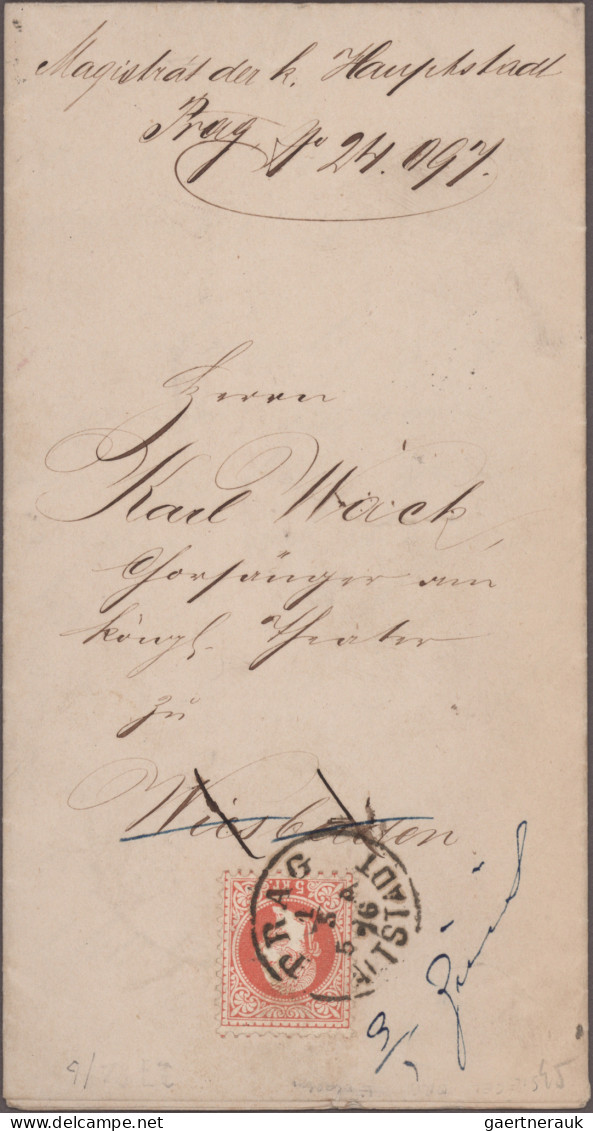 Magistrat der k. Hauptstadt
Prag No 24.097.
Herrn
Karl Wack,
Chorsänger am
königl. Theater
zu
Wiesbaden
PRAG
ALTSTADT
1
5
76
5 KR.
gaertnerauk